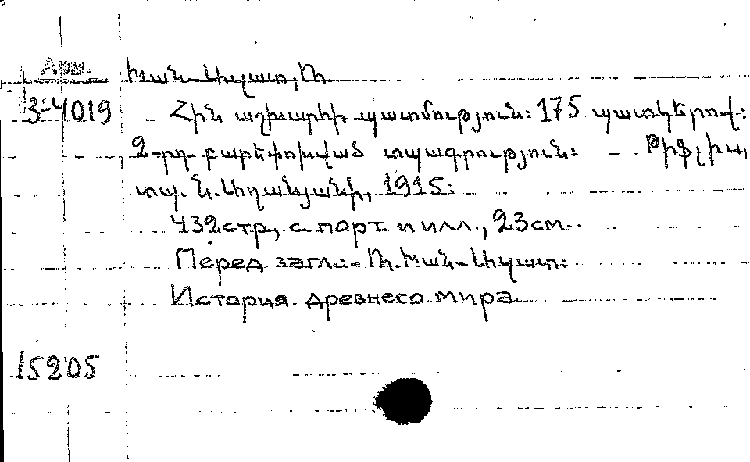 Арм.
Խան-Ազատ, Ռ.
3-4019
Հին աշխարհի պատմություն: 175 պատկերով:
2-րդ բարեփոխված տպագրություն: - Թիֆլիս,
տպ. Ն. Աղանյանի, 1915:
432стр, с порт. и илл., 23см.
Перед загл.: Ռ. Խան-Ազատ.
История древнего мира
15205